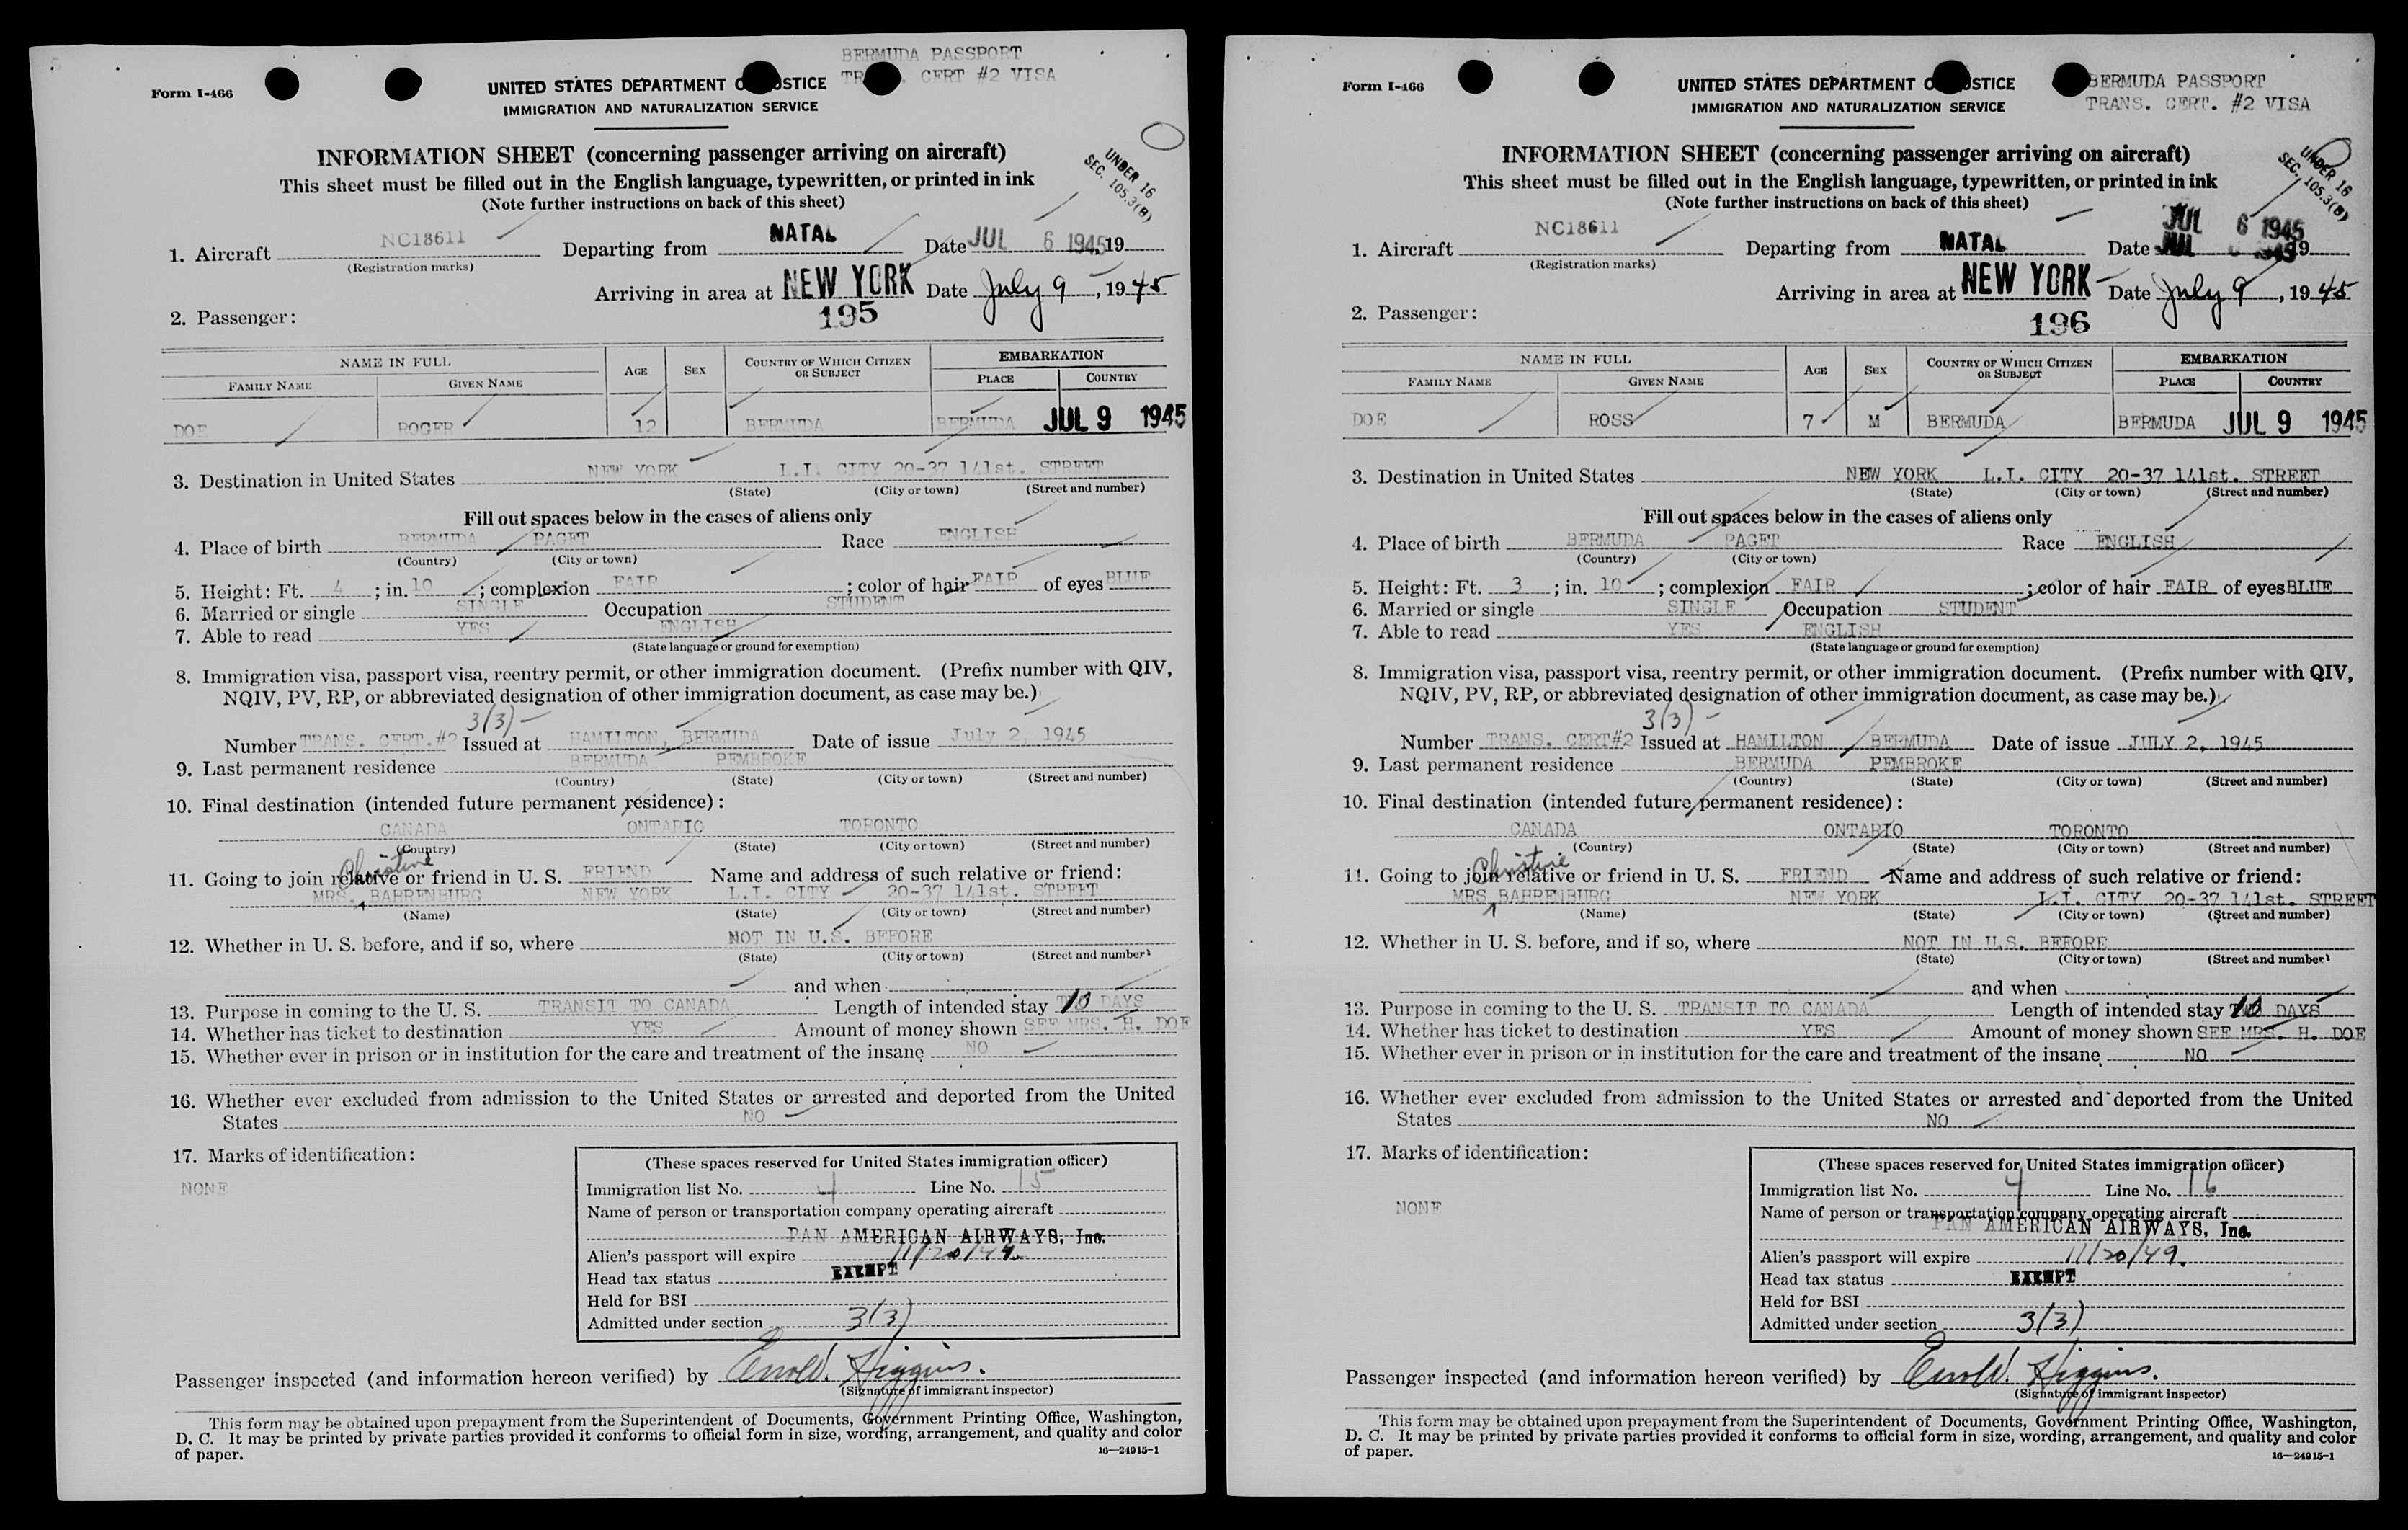 BERMUDA PASSPORT
TR CERT #2 VISA
Form I-466
UNITED STATES DEPARTMENT O STICE
IMMIGRATION AND NATURALIZATION SERVICE
INFORMATION SHEET (concerning passenger arriving on aircraft)
This sheet must be filled out in the English language, typewritten, or printed in ink
(Note further instructions on back of this sheet)
UNDER 16
SEC. 105.3(B)
1. Aircraft NC18611 Departing from NATAL Date JUL 6 1945 19
(Registration marks)
Arriving in area at NEW YORK Date July 9, 1945
195
2. Passenger:
NAME IN FULL AGE SEX COUNTRY OF WHICH CITIZEN OR SUBJECT EMBARKATION
FAMILY NAME GIVEN NAME PLACE COUNTRY
DOE ROGER 12 BERMUDA BERMUDA JUL 9 1945
3. Destination in United States NEW YORK L.I. CITY 20-37 141st. STREET
(State) (City or town) (Street and number)
Fill out spaces below in the cases of aliens only
4. Place of birth BERMUDA PAGET Race ENGLISH
(Country) (City or town)
5. Height: Ft. 4 ; in. 10 ; complexion FAIR ; color of hair FAIR of eyes BLUE
6. Married or single SINGLE Occupation STUDENT
7. Able to read YES ENGLISH
(State language or ground for exemption)
8. Immigration visa, passport visa, reentry permit, or other immigration document. (Prefix number with QIV,
NQIV, PV, RP, or abbreviated designation of other immigration document, as case may be.)
3(3)
Number TRANS. CERT.#2 Issued at HAMILTON, BERMUDA Date of issue July 2, 1945
9. Last permanent residence BERMUDA PEMBROKE
(Country) (State) (City or town) (Street and number)
10. Final destination (intended future permanent residence):
CANADA ONTARIO TORONTO
(Country) (State) (City or town) (Street and number)
Christine
11. Going to join relative or friend in U. S. FRIEND Name and address of such relative or friend:
MRS. BAHRENBURG NEW YORK L.I. CITY 20-37 141st. STREET
(Name) (State) (City or town) (Street and number)
12. Whether in U. S. before, and if so, where NOT IN U.S. BEFORE
(State) (City or town) (Street and number)
and when
13. Purpose in coming to the U. S. TRANSIT TO CANADA Length of intended stay 10 DAYS
14. Whether has ticket to destination YES Amount of money shown SEE MRS. H. DOE
15. Whether ever in prison or in institution for the care and treatment of the insane NO
16. Whether ever excluded from admission to the United States or arrested and deported from the United
States NO
17. Marks of identification:
NONE
(These spaces reserved for United States immigration officer)
Immigration list No. 4 Line No. 15
Name of person or transportation company operating aircraft
PAN AMERICAN AIRWAYS, Inc.
Alien's passport will expire 11/20/49.
Head tax status EXEMPT
Held for BSI
Admitted under section 3(3)
Passenger inspected (and information hereon verified) by Errol D. Higgins.
(Signature of immigrant inspector)
This form may be obtained upon prepayment from the Superintendent of Documents, Government Printing Office, Washington,
D. C. It may be printed by private parties provided it conforms to official form in size, wording, arrangement, and quality and color
of paper.
16—24915-1
BERMUDA PASSPORT
TRANS. CERT. #2 VISA
Form I-466
UNITED STATES DEPARTMENT O STICE
IMMIGRATION AND NATURALIZATION SERVICE
INFORMATION SHEET (concerning passenger arriving on aircraft)
This sheet must be filled out in the English language, typewritten, or printed in ink
(Note further instructions on back of this sheet)
UNDER 16
SEC. 105.3(B)
JUL 6 1945
1. Aircraft NC18611 Departing from NATAL Date JUL 1945 19
(Registration marks)
Arriving in area at NEW YORK Date July 9, 1945
196
2. Passenger:
NAME IN FULL AGE SEX COUNTRY OF WHICH CITIZEN OR SUBJECT EMBARKATION
FAMILY NAME GIVEN NAME PLACE COUNTRY
DOE ROSS 7 M BERMUDA BERMUDA JUL 9 1945
3. Destination in United States NEW YORK L.I. CITY 20-37 141st. STREET
(State) (City or town) (Street and number)
Fill out spaces below in the cases of aliens only
4. Place of birth BERMUDA PAGET Race ENGLISH
(Country) (City or town)
5. Height: Ft. 3 ; in. 10 ; complexion FAIR ; color of hair FAIR of eyes BLUE
6. Married or single SINGLE Occupation STUDENT
7. Able to read YES ENGLISH
(State language or ground for exemption)
8. Immigration visa, passport visa, reentry permit, or other immigration document. (Prefix number with QIV,
NQIV, PV, RP, or abbreviated designation of other immigration document, as case may be.)
3(3)
Number TRANS. CERT#2 Issued at HAMILTON BERMUDA Date of issue JULY 2, 1945
9. Last permanent residence BERMUDA PEMBROKE
(Country) (State) (City or town) (Street and number)
10. Final destination (intended future permanent residence):
CANADA ONTARIO TORONTO
(Country) (State) (City or town) (Street and number)
Christine
11. Going to join relative or friend in U. S. FRIEND Name and address of such relative or friend:
MRS. BAHRENBURG NEW YORK L.I. CITY 20-37 141st. STREET
(Name) (State) (City or town) (Street and number)
12. Whether in U. S. before, and if so, where NOT IN U.S. BEFORE
(State) (City or town) (Street and number)
and when
13. Purpose in coming to the U. S. TRANSIT TO CANADA Length of intended stay 10 DAYS
14. Whether has ticket to destination YES Amount of money shown SEE MRS. H. DOE
15. Whether ever in prison or in institution for the care and treatment of the insane NO
16. Whether ever excluded from admission to the United States or arrested and deported from the United
States NO
17. Marks of identification:
NONE
(These spaces reserved for United States immigration officer)
Immigration list No. 4 Line No. 16
Name of person or transportation company operating aircraft
PAN AMERICAN AIRWAYS, Inc.
Alien's passport will expire 11/20/49.
Head tax status EXEMPT
Held for BSI
Admitted under section 3(3)
Passenger inspected (and information hereon verified) by Errol D. Higgins.
(Signature of immigrant inspector)
This form may be obtained upon prepayment from the Superintendent of Documents, Government Printing Office, Washington,
D. C. It may be printed by private parties provided it conforms to official form in size, wording, arrangement, and quality and color
of paper.
16—24915-1